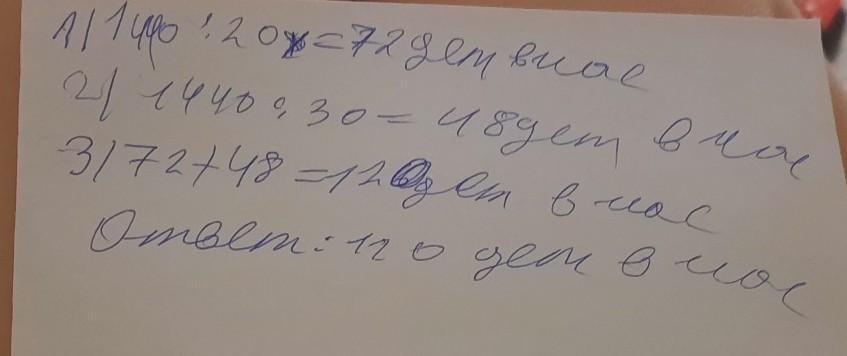 1) 1440 : 20 = 72 дет в час
2) 1440 : 30 = 48 дет в час
3) 72 + 48 = 120 дет в час
Ответ: 120 дет в час